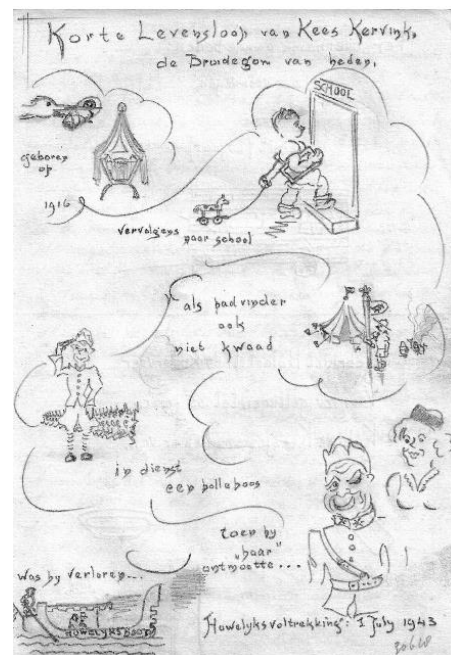 Korte Levensloop van Kees Kervink,
de Bruidegom van heden.
SCHOOL
geboren
op
1916
vervolgens
naar school
als padvinder
ook
niet kwaad
in dienst
een bolleboos
toen hy
„haar"
ontmoette...
was hy verloren...
HUWELYKSBOOT
Huwelyksvoltrekking: 1 July 1943